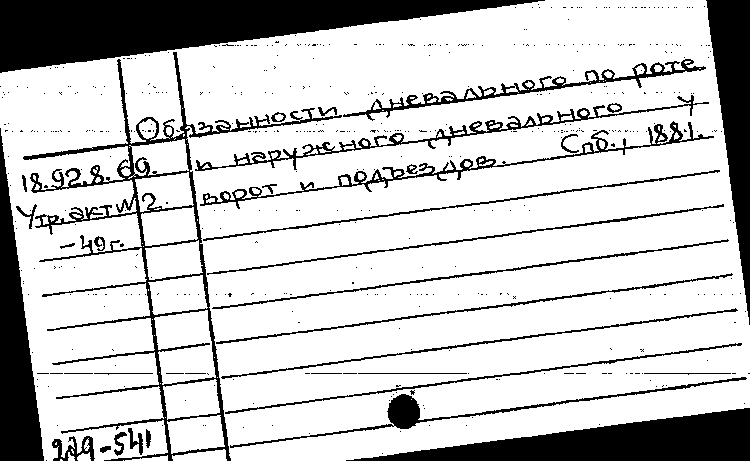 Обязанности дневального по роте
18.92.8.69. и наружного дневального у
Утр. акт №2. ворот и подъездов. Спб., 1881.
-49г.
279-541